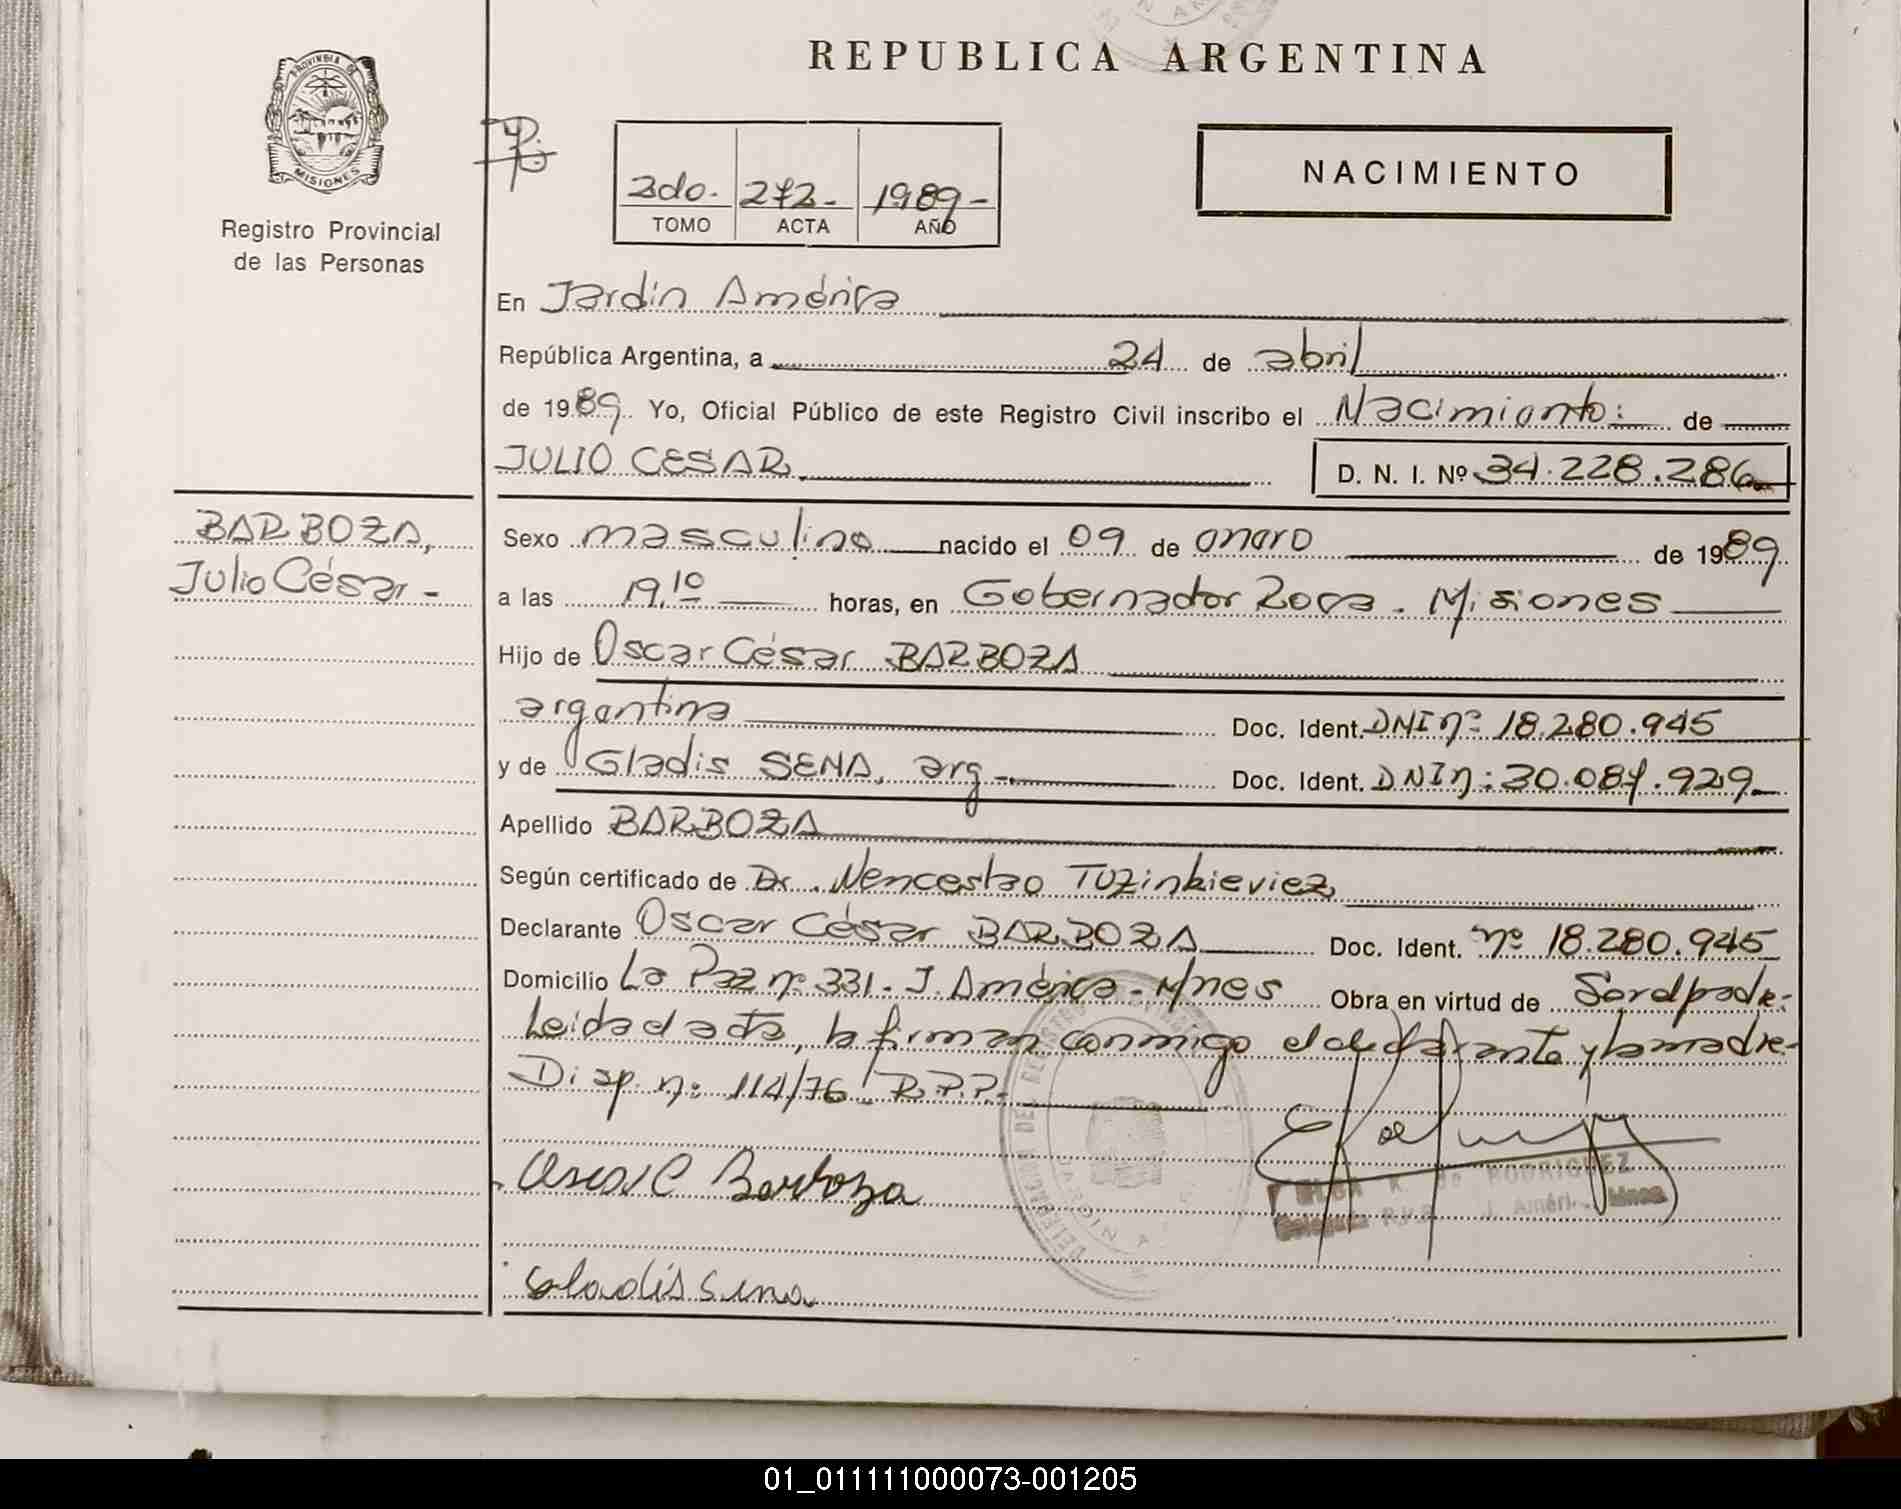 REPUBLICA ARGENTINA
PROVINCIA DE
MISIONES
Registro Provincial
de las Personas
2do.- 272- 1989-
TOMO ACTA AÑO
NACIMIENTO
En Jardín América
República Argentina, a 24 de abril
de 1989 Yo, Oficial Público de este Registro Civil inscribo el Nacimiento: de
JULIO CESAR D. N. I. Nº 34.228.286
BARBOZA,
Julio César -
Sexo masculino nacido el 09 de enero de 1989
a las 19,10 horas, en Gobernador Roca - Misiones
Hijo de Oscar César BARBOZA
argentina Doc. Ident. DNI nº 18.280.945
y de Gladis SENA, arg-. Doc. Ident. DNI n: 30.087.929
Apellido BARBOZA
Según certificado de Dr. Wenceslao Tuzinkieviez
Declarante Oscar César BARBOZA Doc. Ident. nº 18.280.945
Domicilio La Paz nº 331. J. América - M/nes Obra en virtud de Serelpadre.
Leida el acta, la firman conmigo el declarante y la madre-
Disp. nº 114/76 R.P.P.-
Oscar C Barboza
R. de RODRIGUEZ
Delegada R.P.P. J. Améri- Mnes
Gladis Sena
01_011111000073-001205